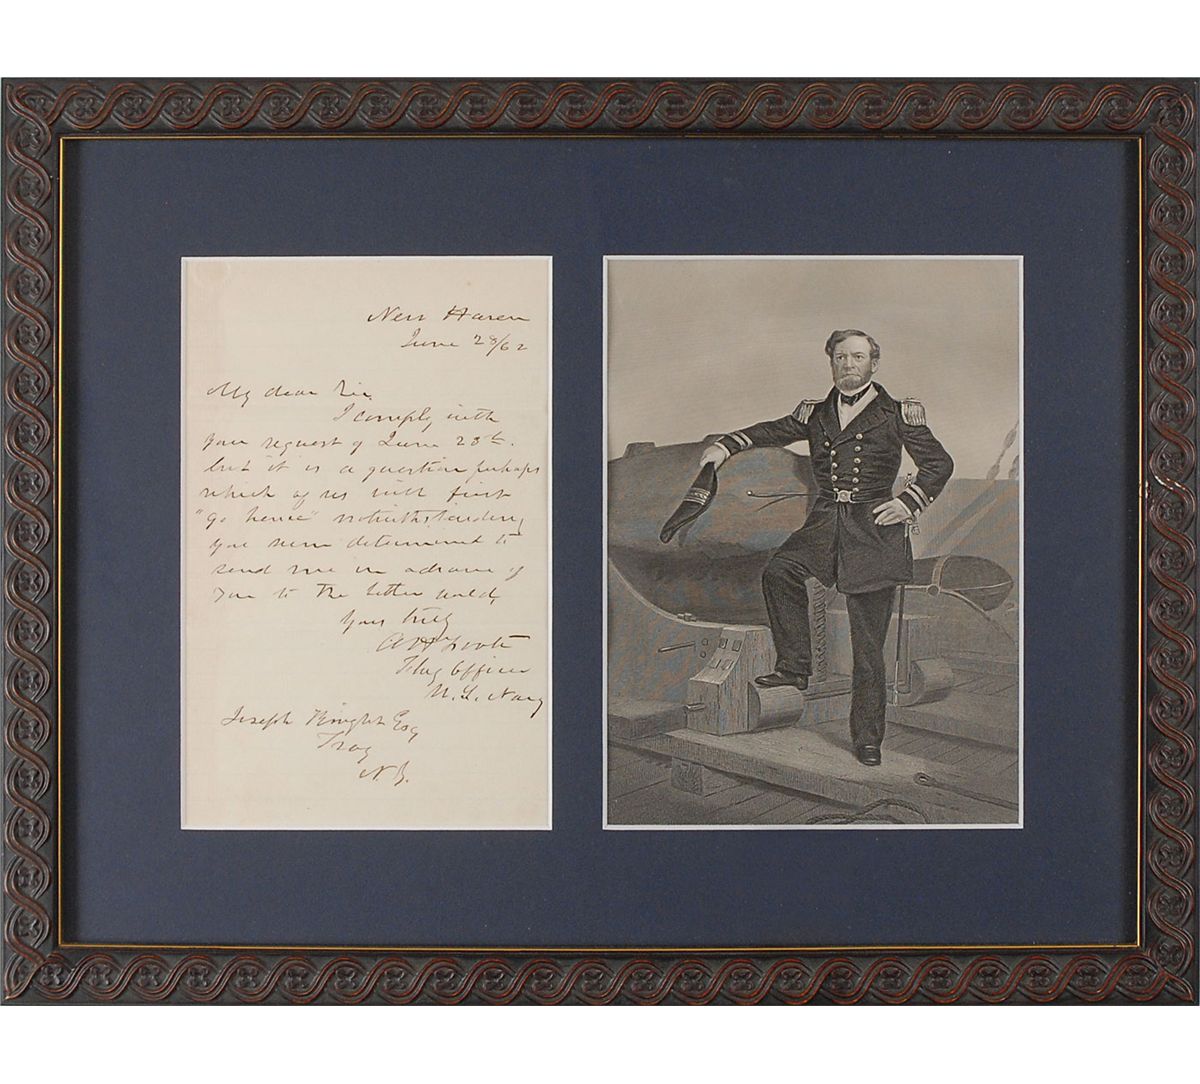 New Haven
June 28/62
My dear Sir,
I comply with
your request of June 25th.
but it is a question perhaps
which of us will first
"go home" notwithstanding
you seem determined to
send me in advance of
you to the better world,
Yours truly
A H Foote
Flag Officer
U. S. Navy
Joseph Knight Esq
Troy
N.Y.